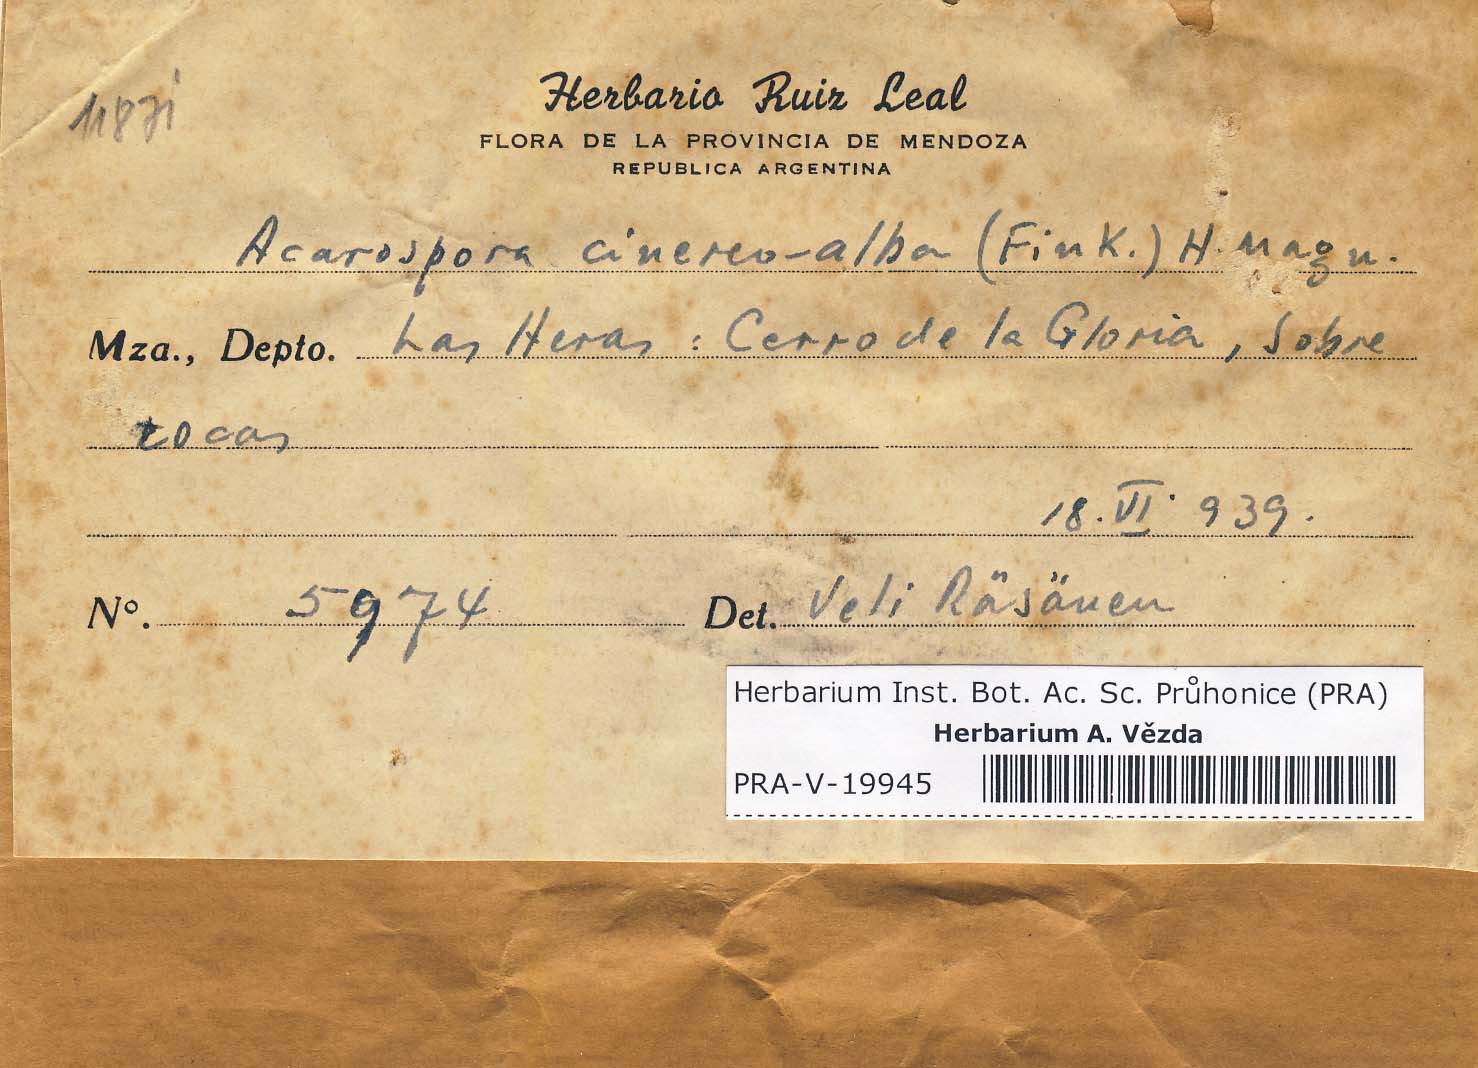 Herbario Ruiz Leal
FLORA DE LA PROVINCIA DE MENDOZA
REPUBLICA ARGENTINA
Acarospora cinereo-alba (Fink.) H. Magn.
Mza., Depto. Las Heras : Cerro de la Gloria, sobre
rocas
18. VI. 939.
Nº. 5974 Det. Veli Räsänen
Herbarium Inst. Bot. Ac. Sc. Průhonice (PRA)
Herbarium A. Vězda
PRA-V-19945